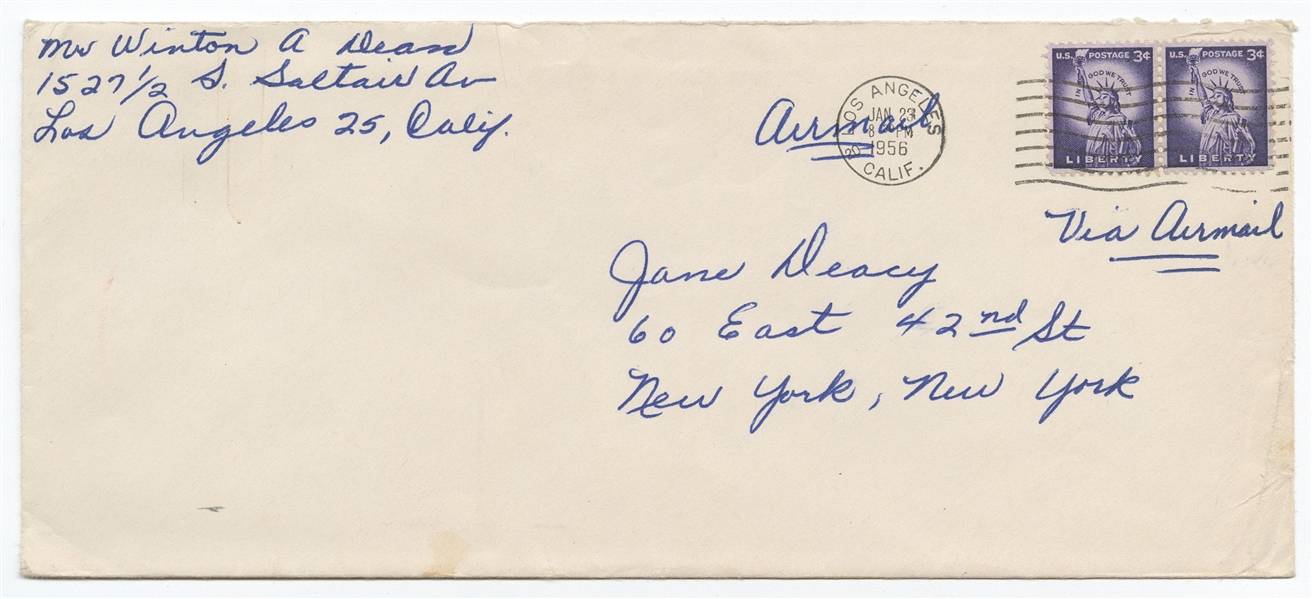 Mr Winton A Dean
1527 1/2 S. Saltair Av
Los Angeles 25, Calif.
Airmail
LOS ANGELES
JAN 23
8 PM
1956
20
CALIF.
U.S. POSTAGE 3¢
IN GOD WE TRUST
LIBERTY
U.S. POSTAGE 3¢
IN GOD WE TRUST
LIBERTY
Via Airmail
Jane Deacy
60 East 42nd St
New York, New York